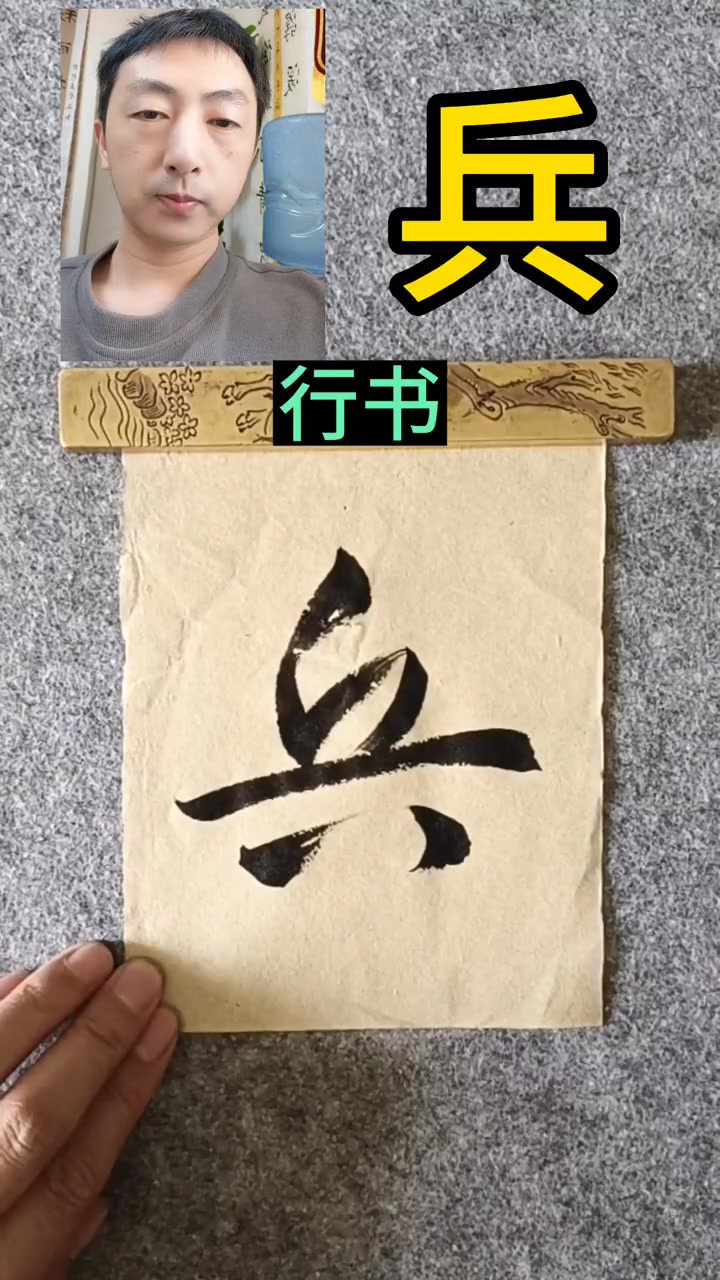 兵
行书
兵